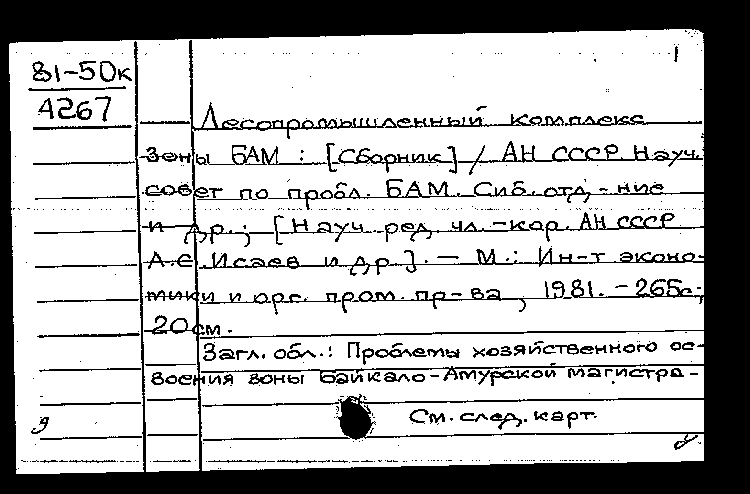 1
81-50к
4267
Лесопромышленный комплекс
зоны БАМ : [Сборник] / АН СССР. Науч.
совет по пробл. БАМ. Сиб. отд-ние
и др. ; [Науч. ред. чл.-кор. АН СССР
А.С. Исаев и др.]. — М. : Ин-т эконо-
мики и орг. пром. пр-ва, 1981. - 265с.;
20см.
Загл. обл.: Проблемы хозяйственного ос-
воения зоны Байкало-Амурской магистра-
См. след. карт.